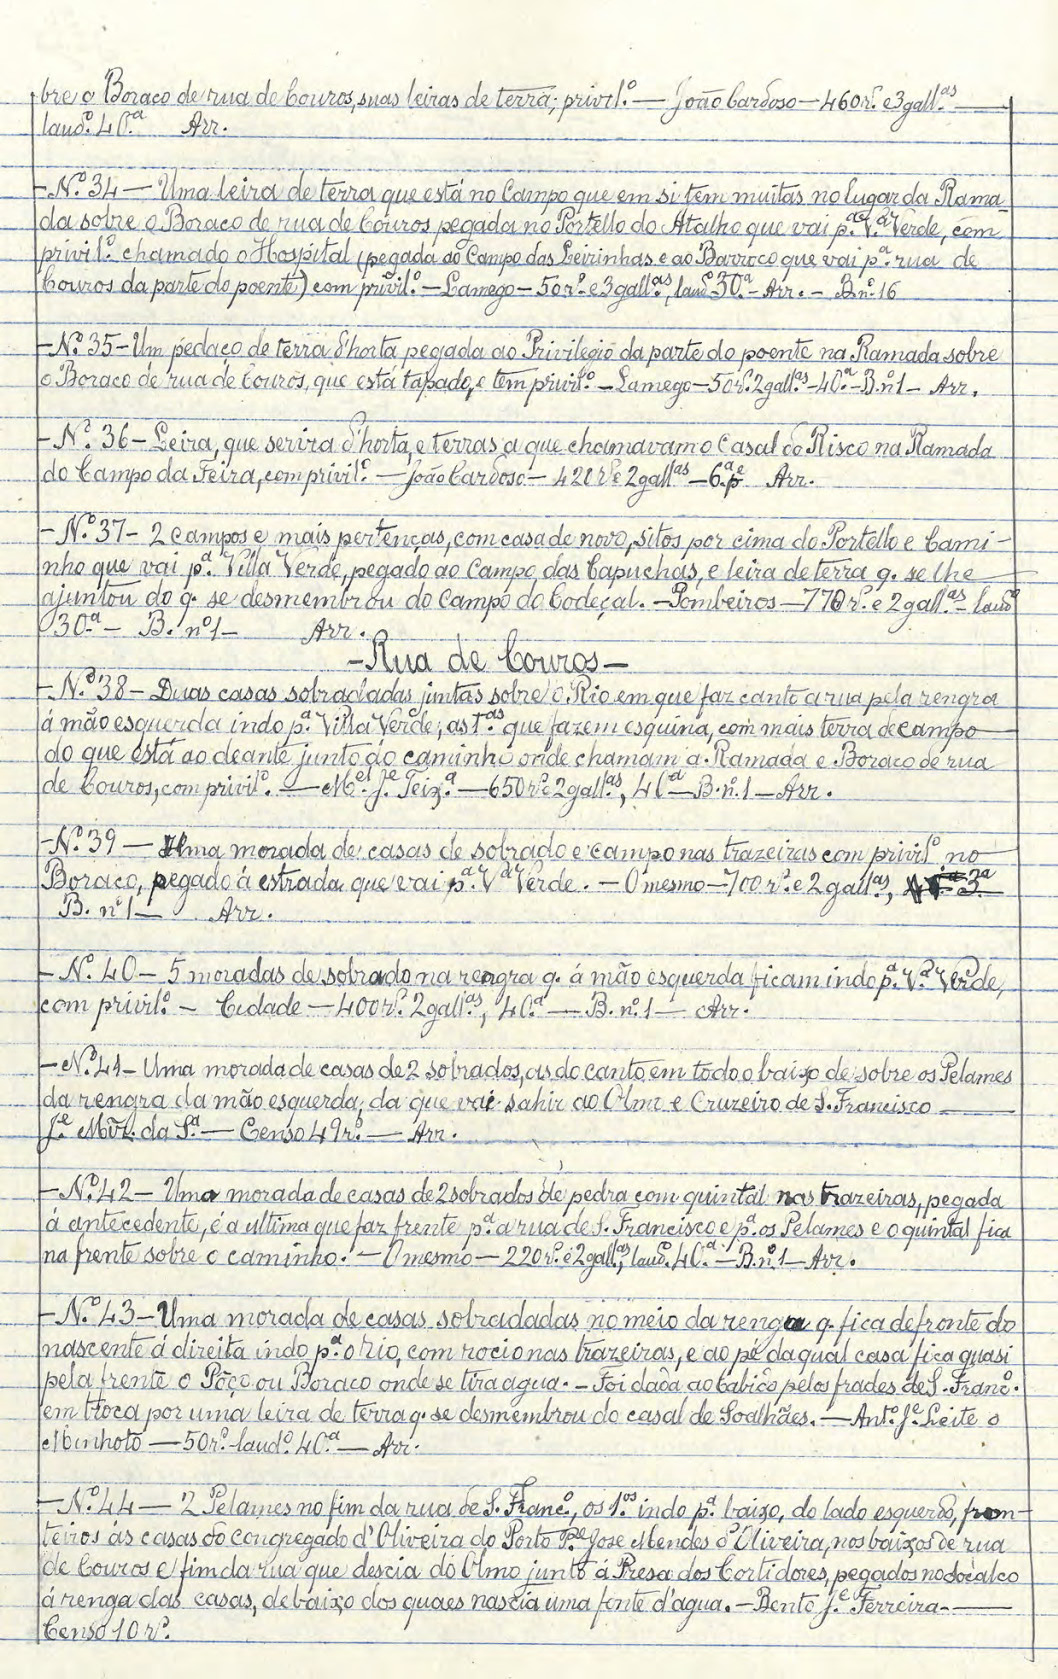 bre o Boraco de rua de Couros, suas leiras de terra; privil.º — João Cardoso — 460 r.s e 3 gall.as —
laud.º 40.ª Arr.
— N.º 34 — Uma leira de terra que está no Campo que em si tem muitas no lugar da Rama-
da sobre o Boraco de rua de Couros pegada no Portello do Atalho que vai p.ª V.ª Verde, com
privil.º chamado o Hospital (pegada ao Campo das Leirinhas e ao Barroco que vai p.ª rua de
Couros da parte do poente) com privil.º — Lamego — 50 r.s e 3 gall.as, laud.º 30.ª — Arr. — B. nº 16
— N.º 35 — Um pedaço de terra d'horta pegada ao Privilegio da parte do poente na Ramada sobre
o Boraco de rua de Couros, que está tapado, e tem privil.º — Lamego — 50 r.s 2 gall.as — 40.ª — B. nº 1 — Arr.
— N.º 36 — Leira, que serira d'horta, e terras a que chamavam o Casal do Risco na Ramada
do Campo da Feira, com privil.º — João Cardoso — 420 r.s e 2 gall.as — 6.ª p.e Arr.
— N.º 37 — 2 campos e mais pertenças, com casa de novo, sitos por cima do Portello e Cami-
nho que vai p.ª Villa Verde, pegado ao Campo das Capuchas, e leira de terra q. se lhe —
ajuntou do q. se desmembrou do Campo do Codeçal. — Pombeiros — 770 r.s e 2 gall.as — laud.º
30.ª — B. nº 1 — Arr.
— Rua de Couros —
— N.º 38 — Duas casas sobradadas juntas sobre o Rio em que faz canto a rua pela rengra
á mão esquerda indo p.ª Villa Verde; as 1.as que fazem esquina, com mais terra de campo —
do que está ao deante junto do caminho onde chamam a Ramada e Boraco de rua
de Couros, com privil.º — M.el J.e Teix.ª — 650 r.s e 2 gall.as, 40.ª — B. nº 1 — Arr.
— N.º 39 — Uma morada de casas de sobrado e campo nas trazeiras com privil.º no —
Boraco, pegado á estrada que vai p.ª V.ª Verde. — O mesmo — 700 r.s e 2 gall.as, 3.ª
B. nº 1 — Arr.
— N.º 40 — 5 moradas de sobrado na rengra q. á mão esquerda ficam indo p.ª V.ª Verde,
com privil.º — Cidade — 400 r.s 2 gall.as, 40.ª — B. nº 1 — Arr.
— N.º 41 — Uma morada de casas de 2 sobrados, as do canto em todo o baixo de sobre os Pelames
da rengra da mão esquerda, da que vai sahir ao Olmo e Cruzeiro de S. Francisco —
J.e Miz. da S.ª — Censo 49 r.s — Arr.
— N.º 42 — Uma morada de casas de 2 sobrados de pedra com quintal nas trazeiras, pegada
á antecedente, é a ultima que faz frente p.ª a rua de S. Francisco e p.ª os Pelames e o quintal fica
na frente sobre o caminho. — O mesmo — 220 r.s e 2 gall.as, laud.º 40.ª — B. nº 1 — Arr.
— N.º 43 — Uma morada de casas sobradadas no meio da renga q. fica defronte do
nascente á direita indo p.ª o rio, com rocio nas trazeiras, e ao pé da qual casa fica quasi
pela frente o Pôço ou Boraco onde se tira agua. — Foi dada ao Cabido pelos frades de S. Franc.º
em troca por uma leira de terra q. se desmembrou do casal de Soalhães. — Ant.º J.e Leite o
Minhoto — 50 r.s laud.º 40.ª — Arr.
— N.º 44 — 2 Pelames no fim da rua de S. Franc.º, os 1.os indo p.ª baixo, do lado esquerdo, fron-
teiros ás casas do congregado d'Oliveira do Porto P.e José Mendes d'Oliveira, nos baixos de rua
de Couros e fim da rua que descia do Olmo junto á Presa dos Cortidores, pegados no socalco
á renga das casas, debaixo dos quaes nascia uma fonte d'agua. — Bento J.e Ferreira —
Censo 10 r.s